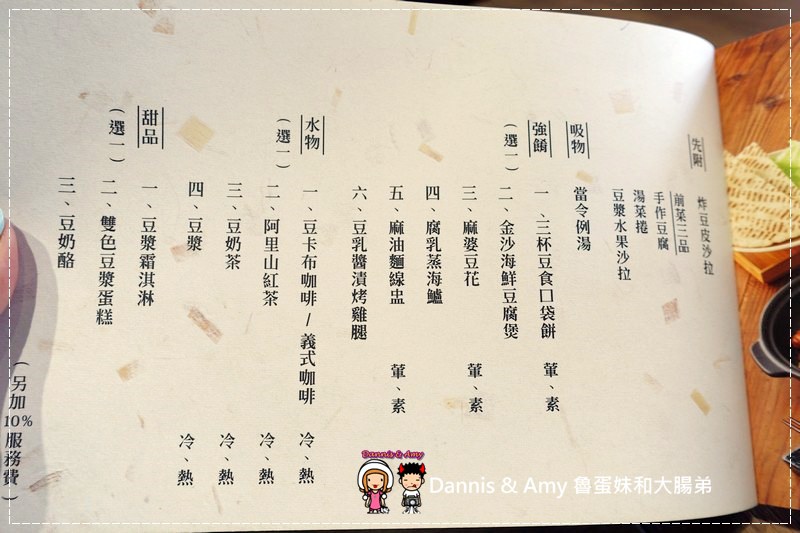 先附
炸豆皮沙拉
前菜三品
手作豆腐
湯菜捲
豆漿水果沙拉
吸物
當令例湯
強餚
(選一)
一、三杯豆食口袋餅 葷、素
二、金沙海鮮豆腐煲
三、麻婆豆花 葷、素
四、腐乳蒸海鱸
五、麻油麵線盅 葷、素
六、豆乳醬漬烤雞腿
水物
(選一)
一、豆卡布咖啡/義式咖啡 冷、熱
二、阿里山紅茶 冷、熱
三、豆奶茶 冷、熱
四、豆漿 冷、熱
甜品
(選一)
一、豆漿霜淇淋
二、雙色豆漿蛋糕
三、豆奶酪
(另加10%服務費)
Dannis & Amy
Dannis & Amy 魯蛋妹和大腸弟